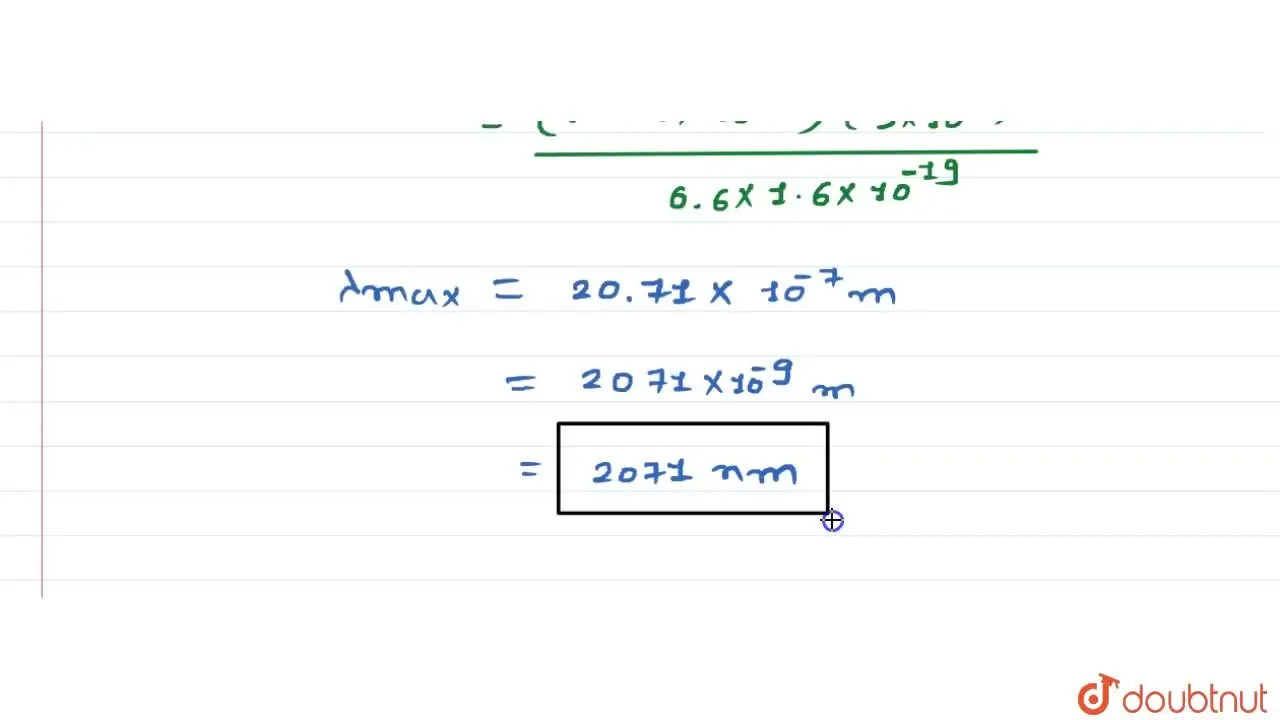 6.6 × 1.6 × 10⁻¹⁹
λmax = 20.71 × 10⁻⁷ m
= 2071 × 10⁻⁹ m
= 2071 nm
doubtnut